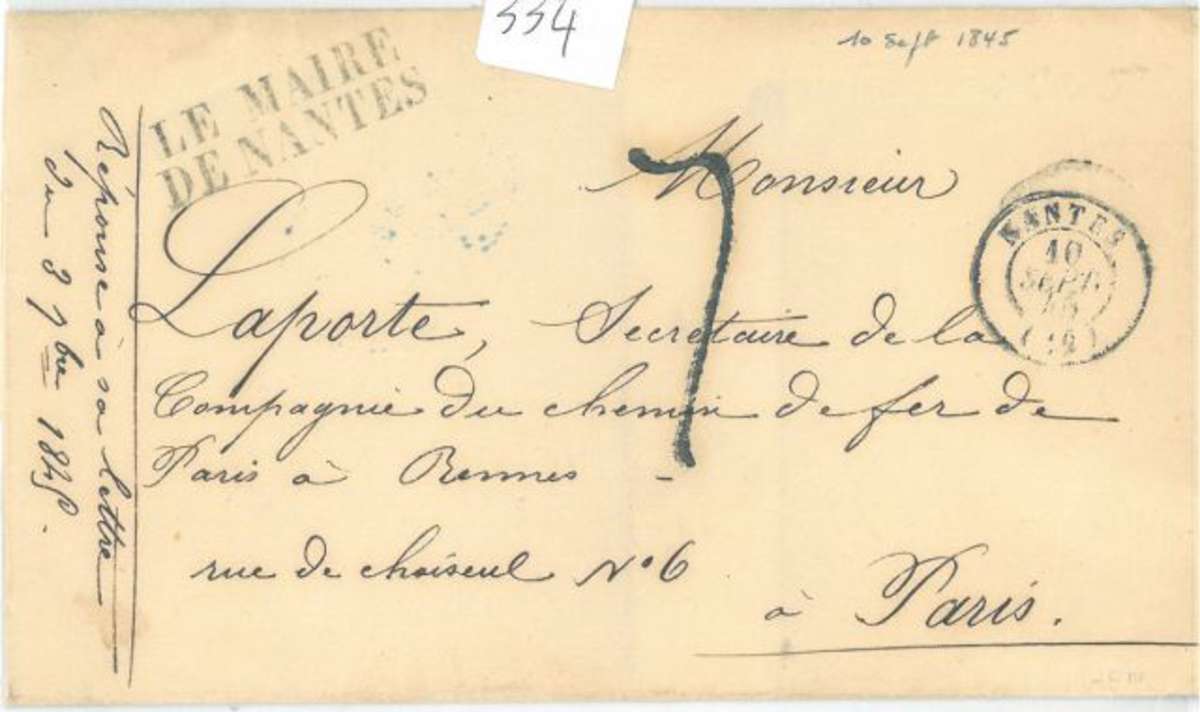 334
10 Sept 1845
LE MAIRE
DE NANTES
Monsieur
7
Laporte, Secretaire de la
Compagnie du chemin de fer de
Paris à Rennes -
rue de choiseul N° 6
à Paris.
NANTES
10
SEPT.
45
(42)
Réponse à sa lettre
du 3 7bre 1845.